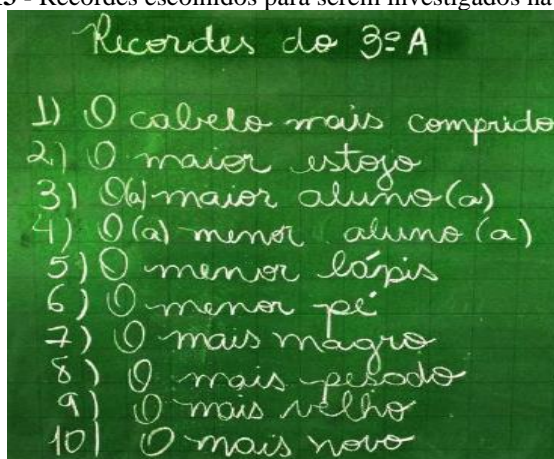 Recordes escolhidos para serem investigados na
Recordes do 3º A
1) O cabelo mais comprido
2) O maior estojo
3) O(a) maior aluno(a)
4) O(a) menor aluno(a)
5) O menor lápis
6) O menor pé
7) O mais magro
8) O mais pesado
9) O mais velho
10) O mais novo